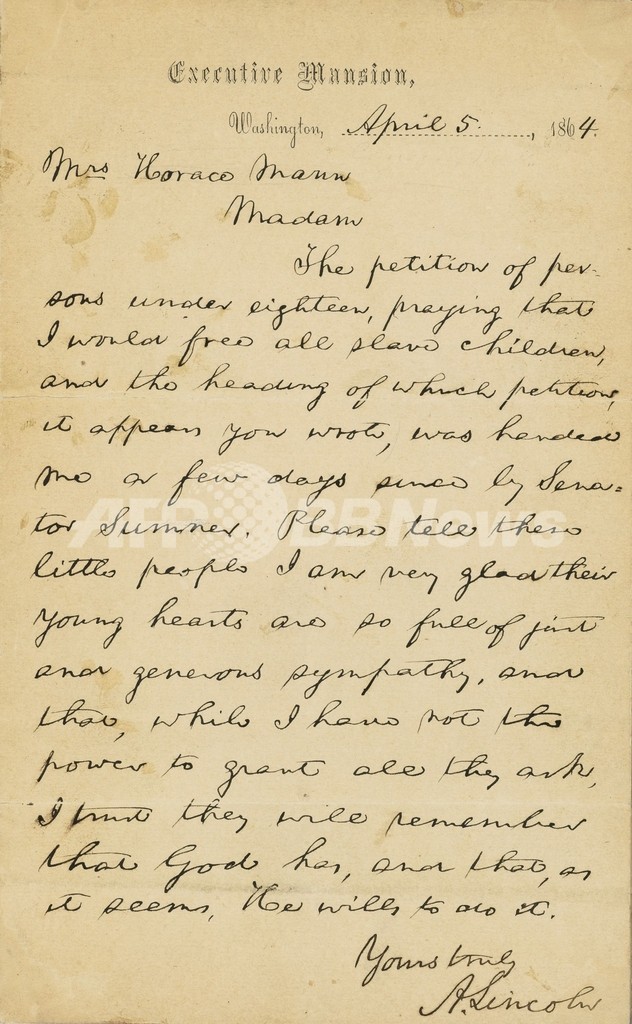 Executive Mansion,
Washington, April 5. , 1864.
Mrs Horace Mann
Madam
The petition of per-
sons under eighteen, praying that
I would free all slave children,
and the heading of which petition,
it appears you wrote, was handed
me a few days since by Sena-
tor Sumner. Please tell these
little people I am very glad their
young hearts are so full of just
and generous sympathy, and
that, while I have not the
power to grant all they ask,
I trust they will remember
that God has, and that, as
it seems, He wills to do it.
Yours truly
A. Lincoln
AFP BBNews